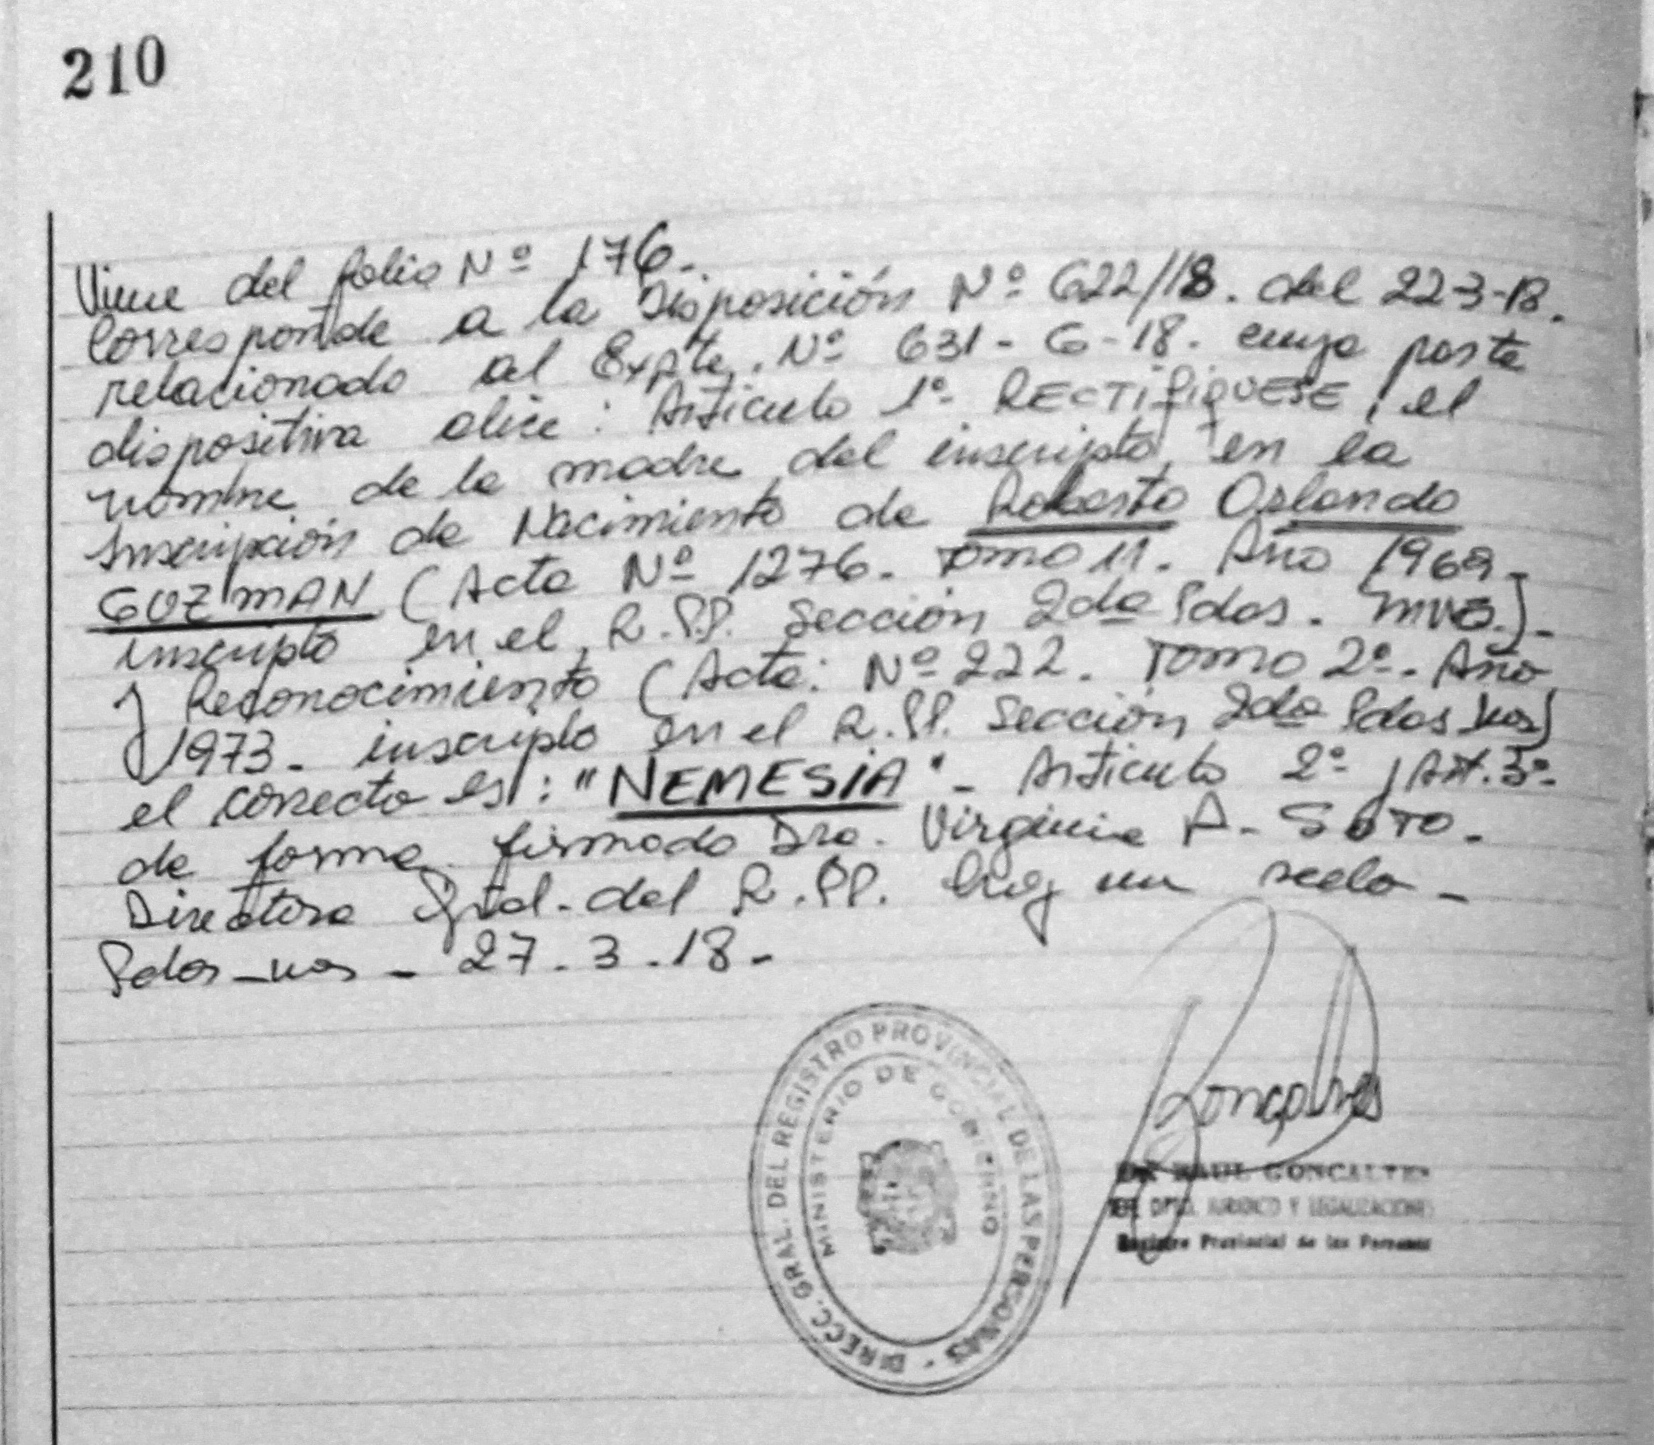 210
Viene del folio Nº 176.-
Corresponde a la Disposición Nº 622/18. del 22-3-18.
relacionado al Expte. Nº 631-G-18. cuya parte
dispositiva dice: Artículo 1º- RECTIFIQUESE, el
nombre de la madre del inscripto, en la
Inscripción de Nacimiento de Roberto Orlando
GUZMAN (Acta Nº 1276. Tomo 11. Año 1969.-
inscripto en el R.P.P. Sección 2da Pdas. Mnes.).-
y Reconocimiento (Acta: Nº 222. Tomo 2º-. Año
1973.- inscripto en el R.P.P. Sección 2da Pdas
el correcto es: "NEMESIA"- Artículo 2º- y Art. 3º-
de forma. firmado Dra. Virginia A. SOTO.-
Directora Gral. del R.P.P. hay un sello-
Pdas - 27.3.18.-
DIRECC. GRAL. DEL REGISTRO PROVINCIAL DE LAS PERSONAS
MINISTERIO DE GOBIERNO
Goncalves
RAUL GONCALVES
DPTO. JURIDICO Y LEGALIZACIONES
Registro Provincial de las Personas